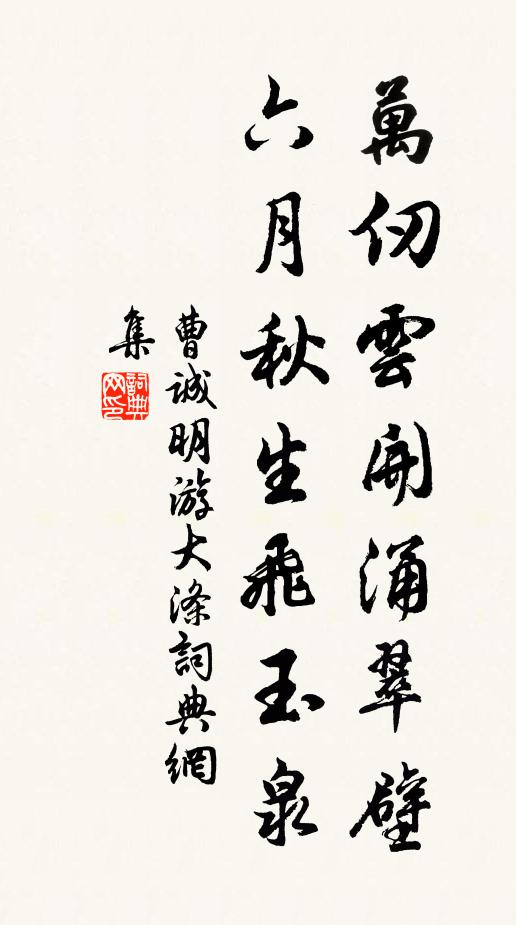 萬仞雲開涌翠壁
六月秋生飛玉泉
曹誠明游大滌詞典網
集
詞典
网印